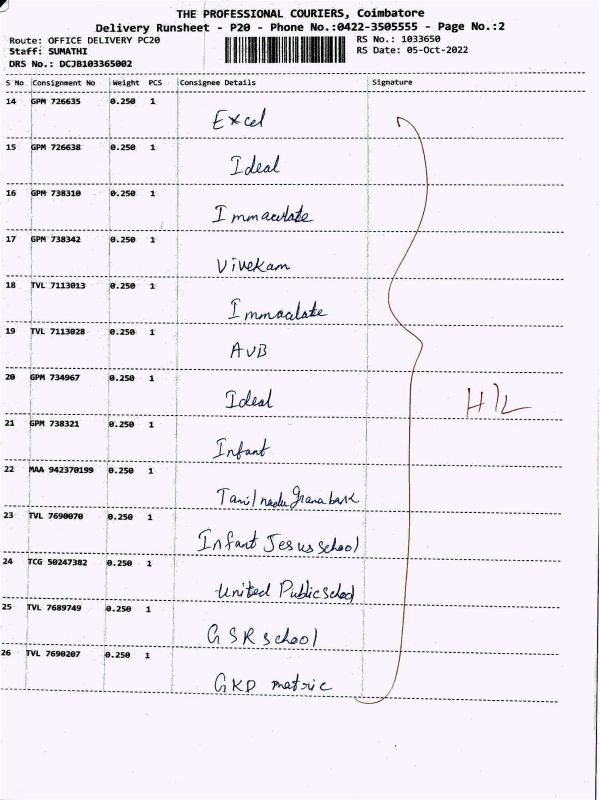 THE PROFESSIONAL COURIERS, Coimbatore
Delivery Runsheet - P20 - Phone No.:0422-3505555 - Page No.:2
Route: OFFICE DELIVERY PC20 RS No.: 1033650
Staff: SUMATHI RS Date: 05-Oct-2022
DRS No.: DCJB103365002
S No Consignment No Weight PCS Consignee Details Signature
14 GPM 726635 0.250 1 Excel
15 GPM 726638 0.250 1 Ideal
16 GPM 738310 0.250 1 Immaculate
17 GPM 738342 0.250 1 Vivekam
18 TVL 7113013 0.250 1 Immaculate
19 TVL 7113028 0.250 1 AVB
20 GPM 734967 0.250 1 Ideal
21 GPM 738321 0.250 1 Infant
22 MAA 942370199 0.250 1 Tamilnadu grama bank
23 TVL 7690070 0.250 1 Infant Jesus school
24 TCG 50247382 0.250 1 United Public school
25 TVL 7689749 0.250 1 GSR school
26 TVL 7690207 0.250 1 GKD matric